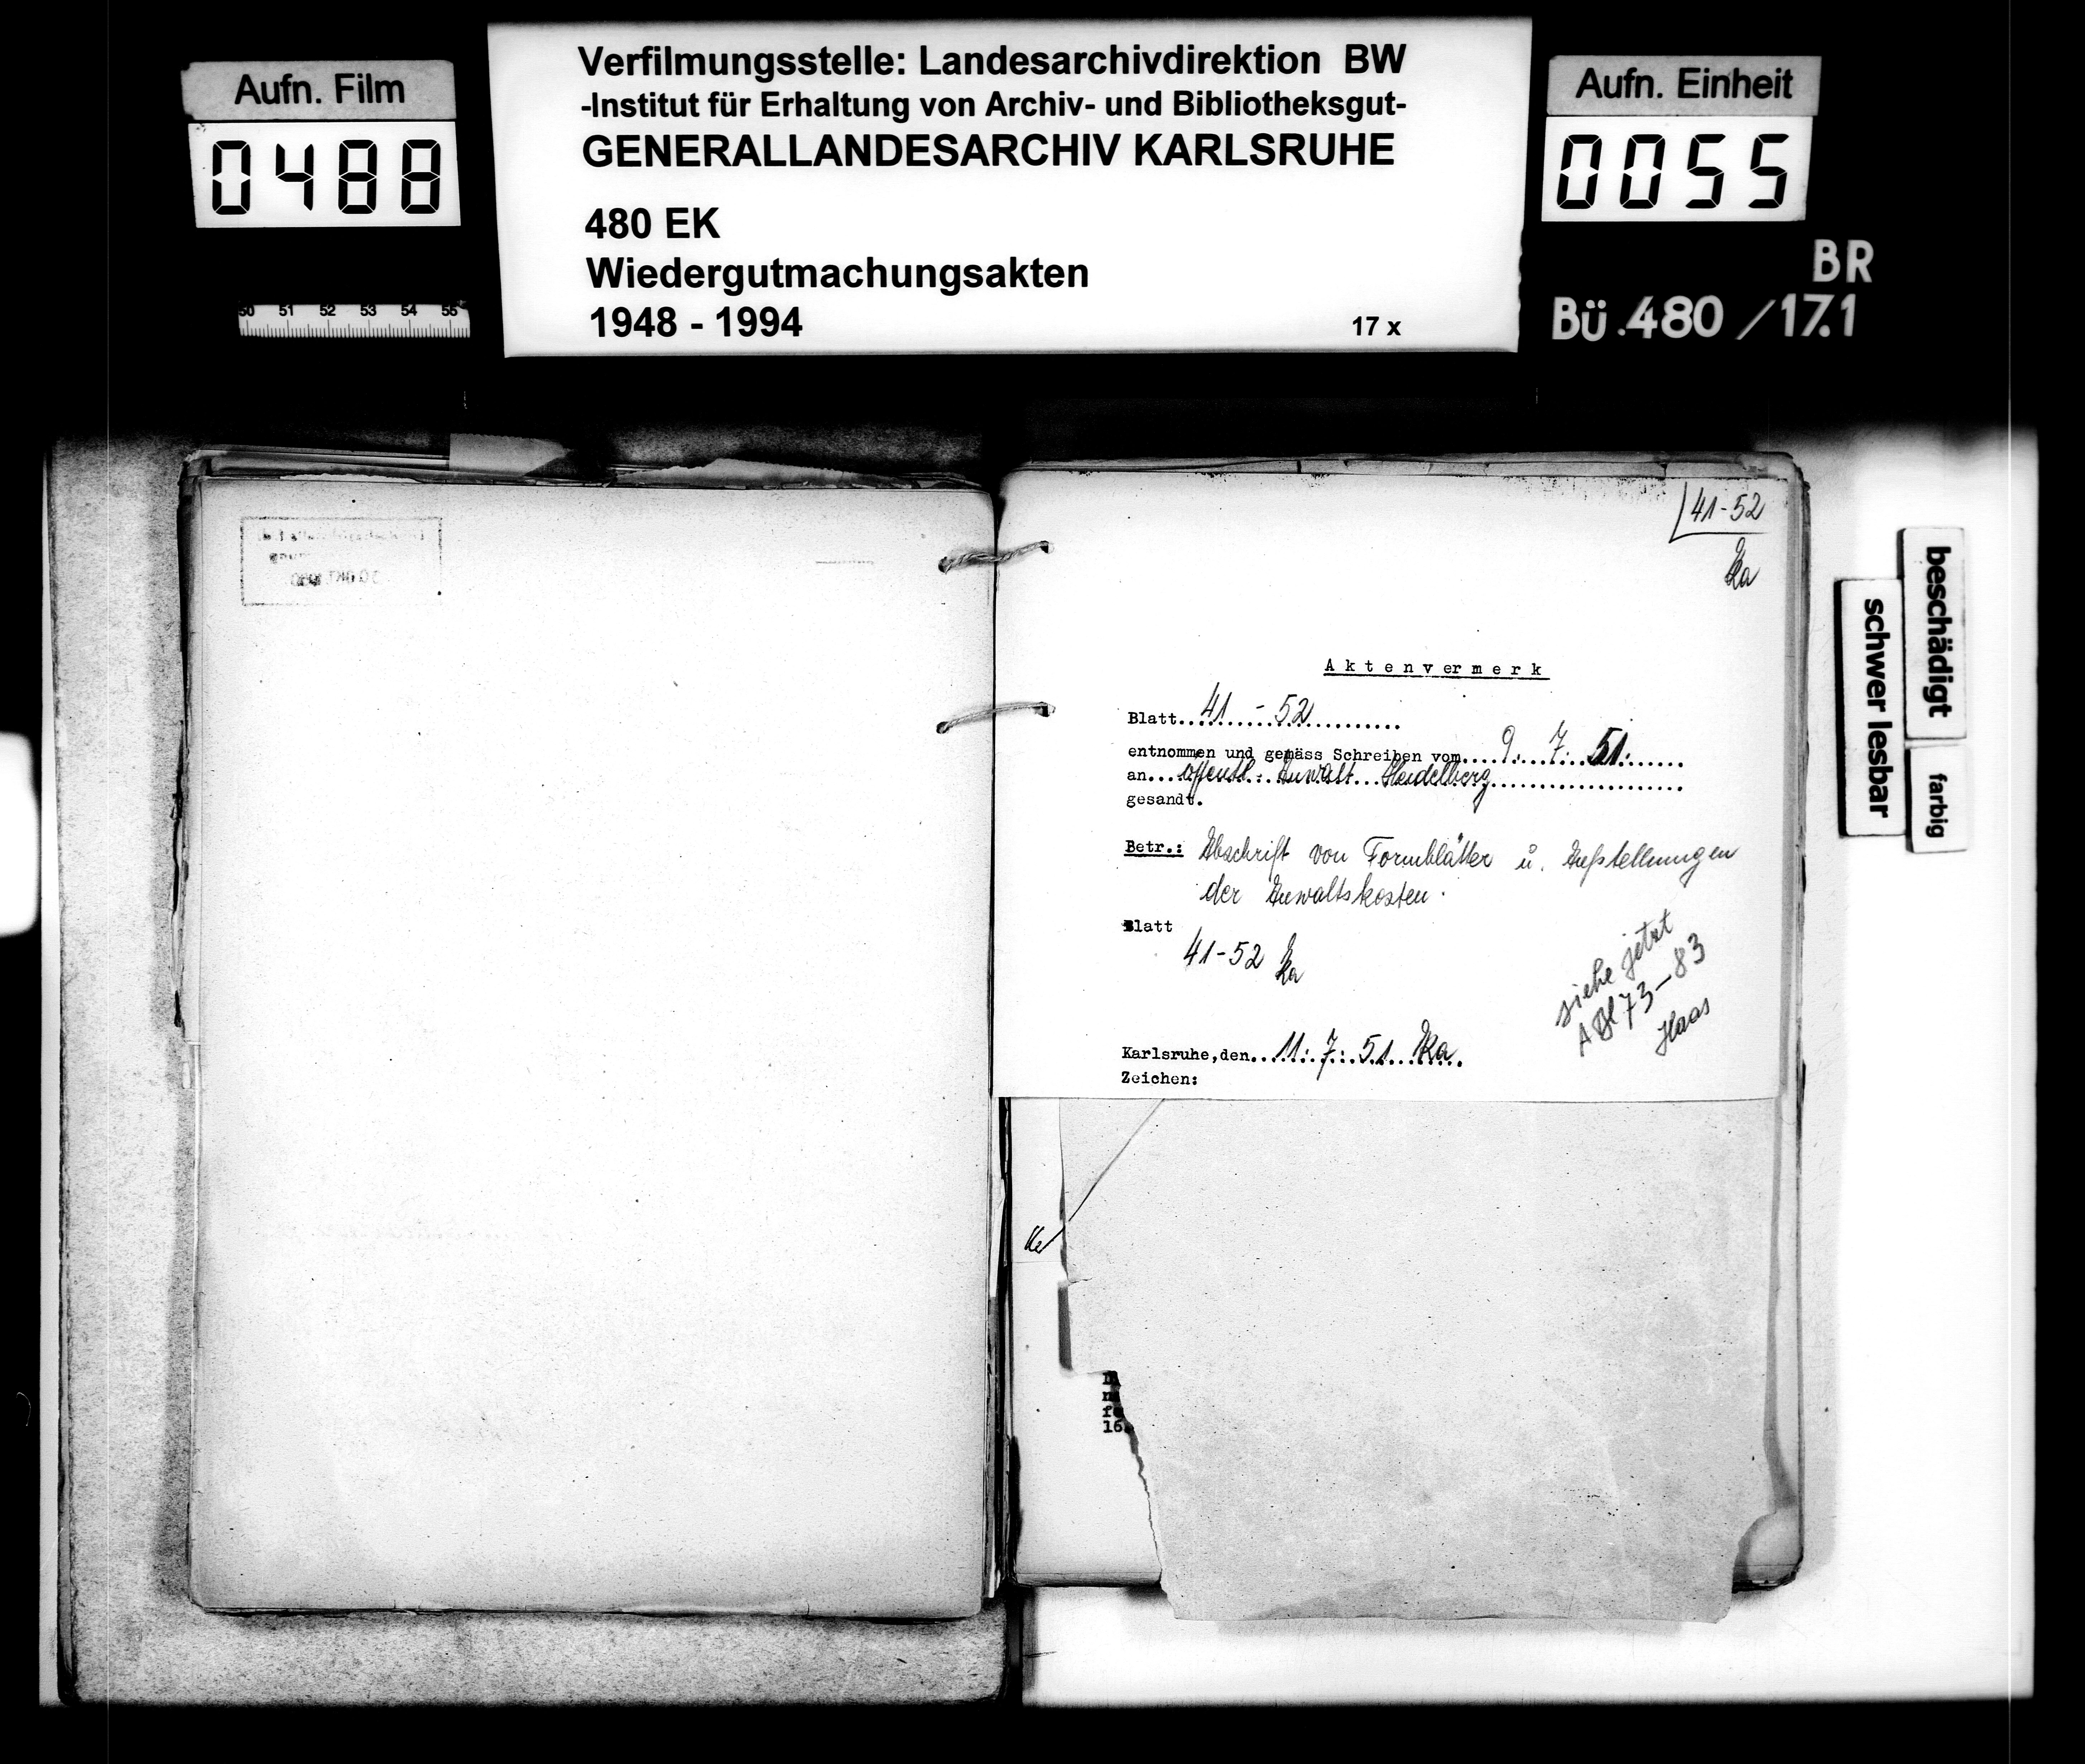 Aufn. Film
0488
Verfilmungsstelle: Landesarchivdirektion BW
-Institut für Erhaltung von Archiv- und Bibliotheksgut-
GENERALLANDESARCHIV KARLSRUHE
480 EK
Wiedergutmachungsakten
1948 - 1994
17 x
Aufn. Einheit
0055
BR
Bü.480/17.1
50 51 52 53 54 55
41-52
Ka
Aktenvermerk
Blatt..41 - 52..........
entnommen und gemäss Schreiben vom....9. 7. 51.......
an...öffentl. Anwalt Heidelberg........................
gesandt.
Betr.: Abschrift von Formblätter u. Aufstellungen
der Anwaltskosten.
Blatt
41-52 Ka
siehe jetzt
ABl 73-83
Haas
Karlsruhe,den..11. 7. 51 Ka.
Zeichen:
beschädigt
schwer lesbar
farbig